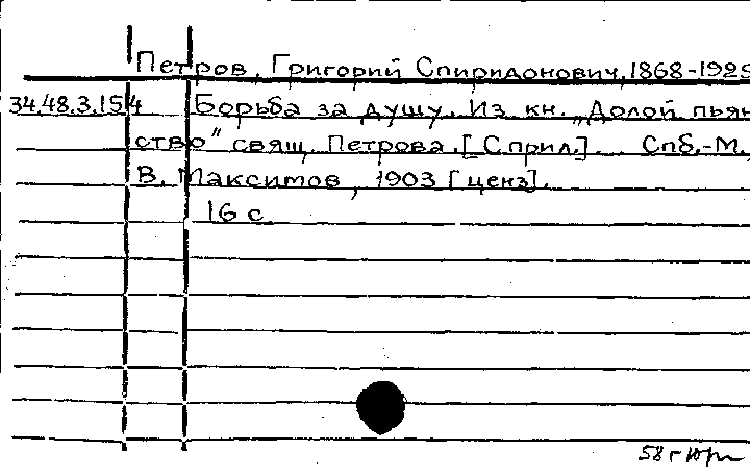 Петров, Григорий Спиридонович, 1868-1925
34.48.3.154 Борьба за душу. Из кн. „Долой пьян
ство" свящ. Петрова. [С прил.]. Спб.-М.
В. Максимов, 1903 [ценз].
16 с.
58 г